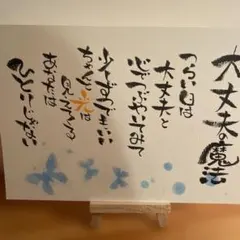 大丈夫の魔法
つらい日は
大丈夫と
心でつぶやいてみて
少しずつでいい
ちゃんと光は
見えてくる
あなたは
ひとりじゃない